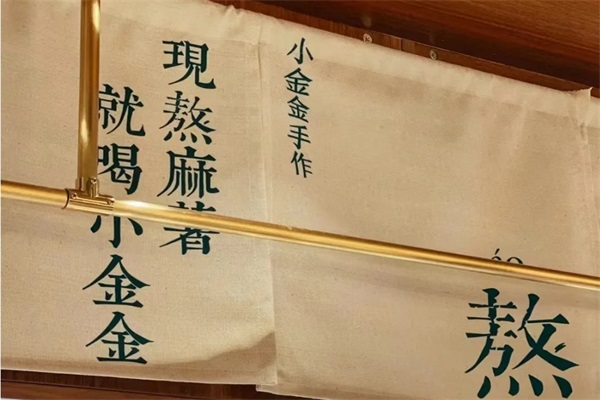 現熬麻薯
就喝小金金
小金金手作
áo
熬